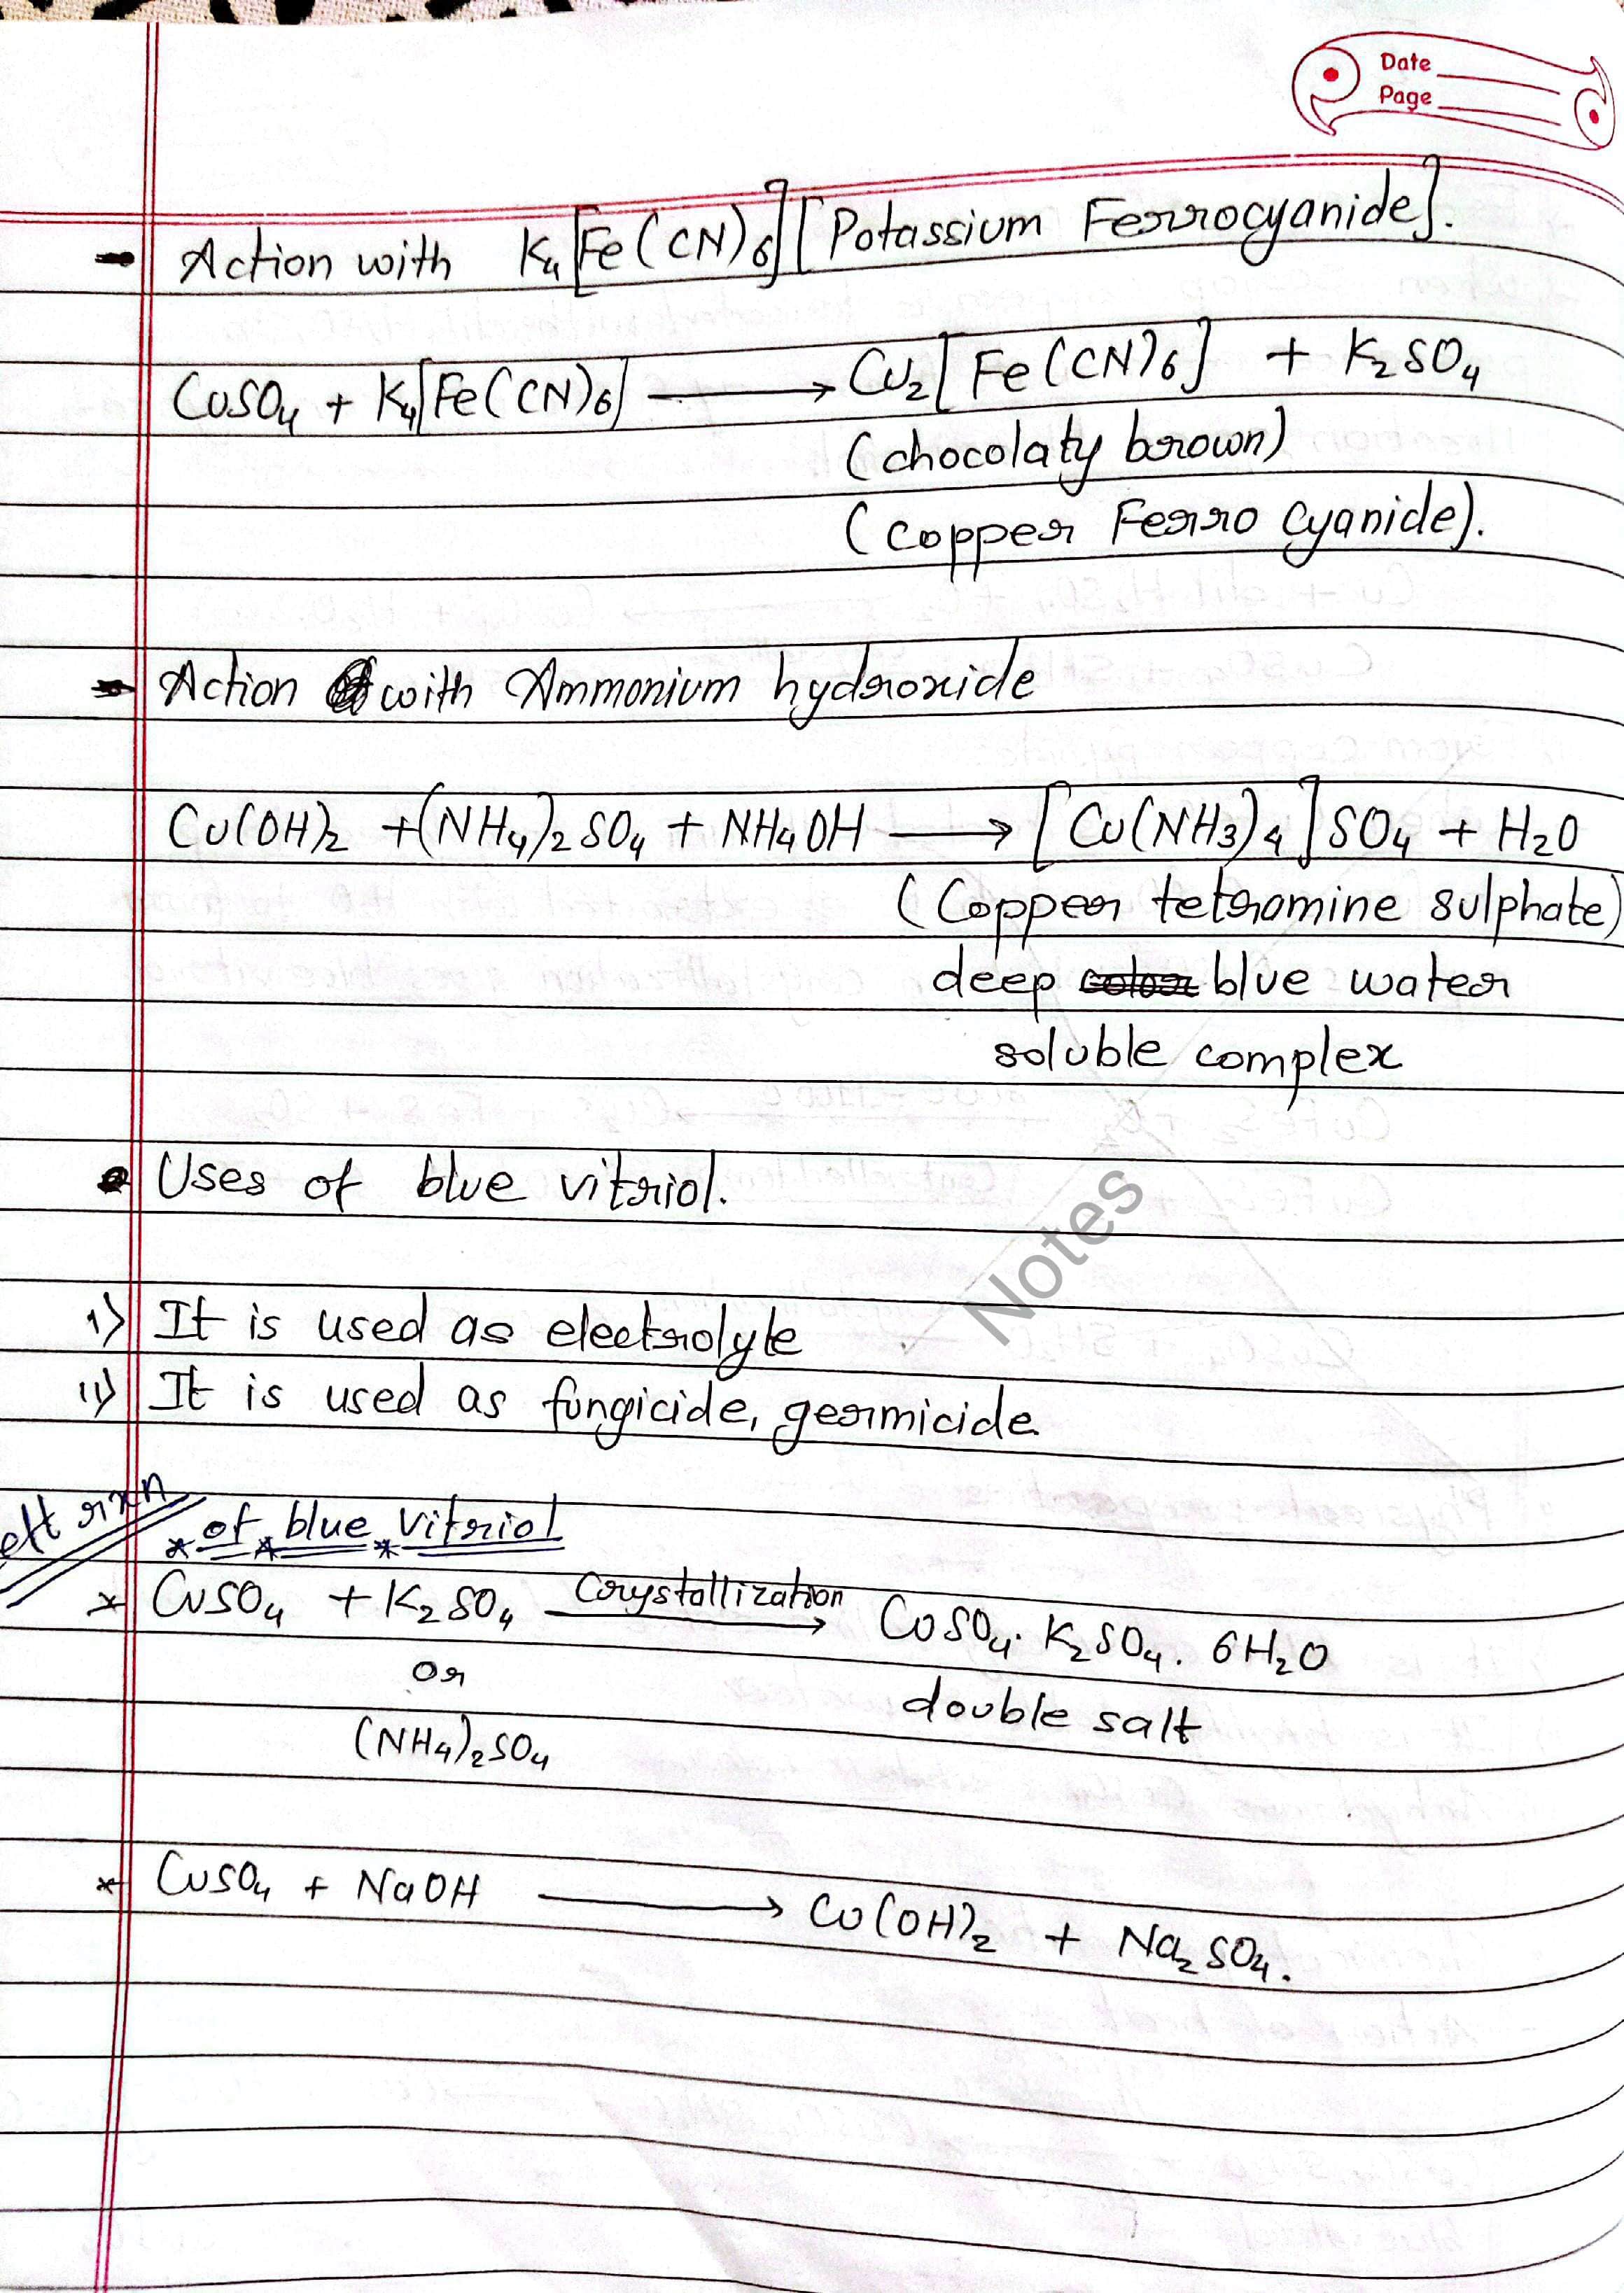 Date
Page
- Action with K4[Fe(CN)6] [Potassium Ferrocyanide].
CuSO4 + K4[Fe(CN)6] ⟶ Cu2[Fe(CN)6] + K2SO4
(chocolaty brown)
(Copper Ferro Cyanide).
- Action with Ammonium hydroxide
Cu(OH)2 + (NH4)2SO4 + NH4OH ⟶ [Cu(NH3)4]SO4 + H2O
(Copper tetramine sulphate)
deep color blue water
soluble complex
• Uses of blue vitriol.
Notes
i) It is used as electrolyte
ii) It is used as fungicide, germicide
rxn
* of * blue * vitriol
* CuSO4 + K2SO4 Crystallization ⟶ CuSO4. K2SO4. 6H2O
or double salt
(NH4)2SO4
* CuSO4 + NaOH ⟶ Cu(OH)2 + Na2SO4.